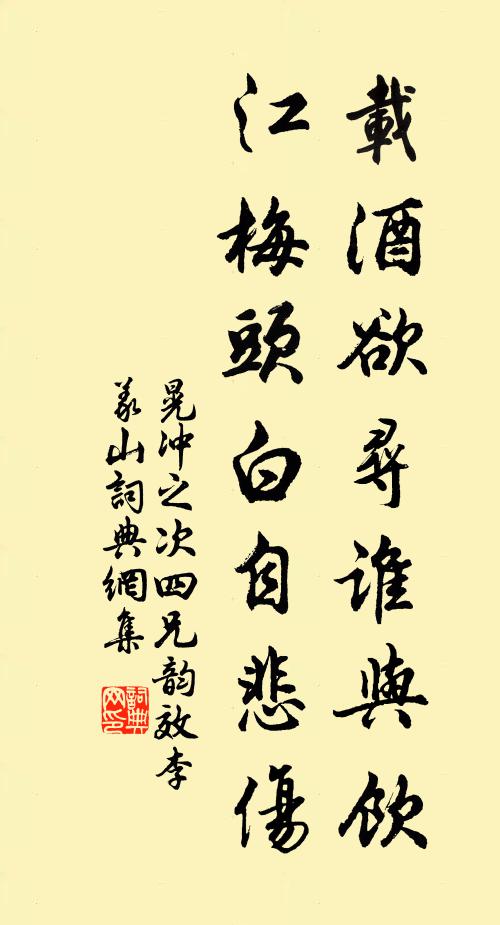 載酒欲尋誰與飲
江梅頭白自悲傷
晁沖之次四兄韵效李
義山詞典網集
詞典网印